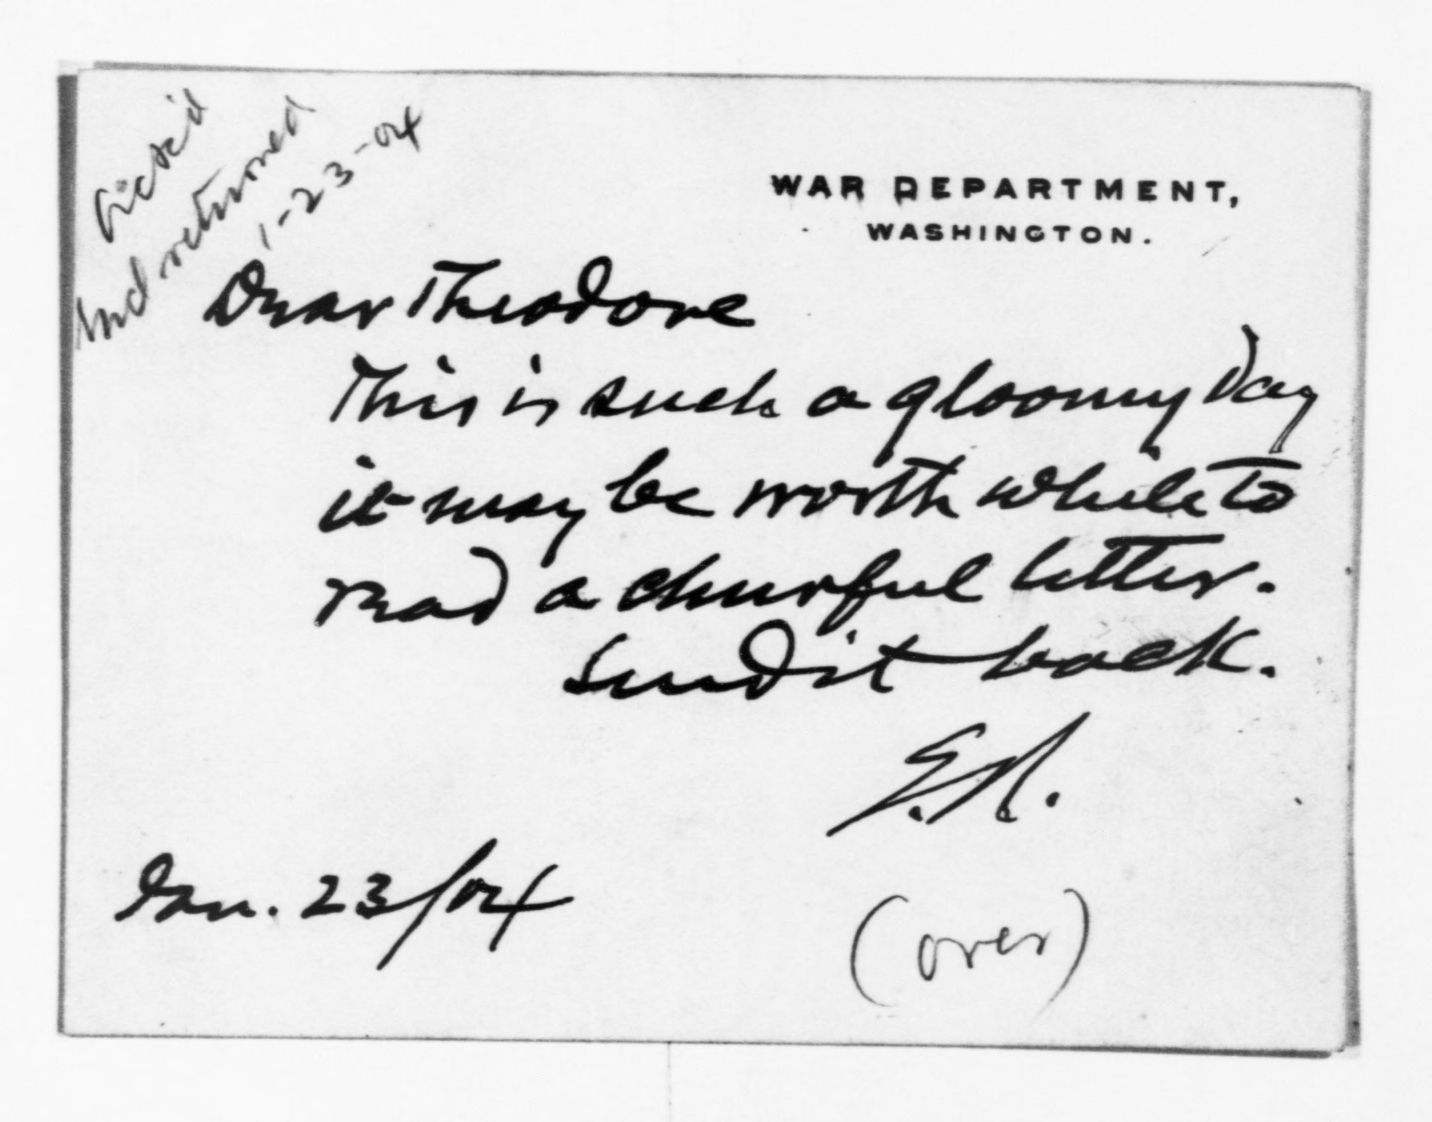 Ack'd
and returned
1-23-04
WAR DEPARTMENT,
WASHINGTON.
Dear Theodore
This is such a gloomy day
it may be worth while to
read a cheerful letter.
Send it back.
E.R.
Jan. 23/04
(over)